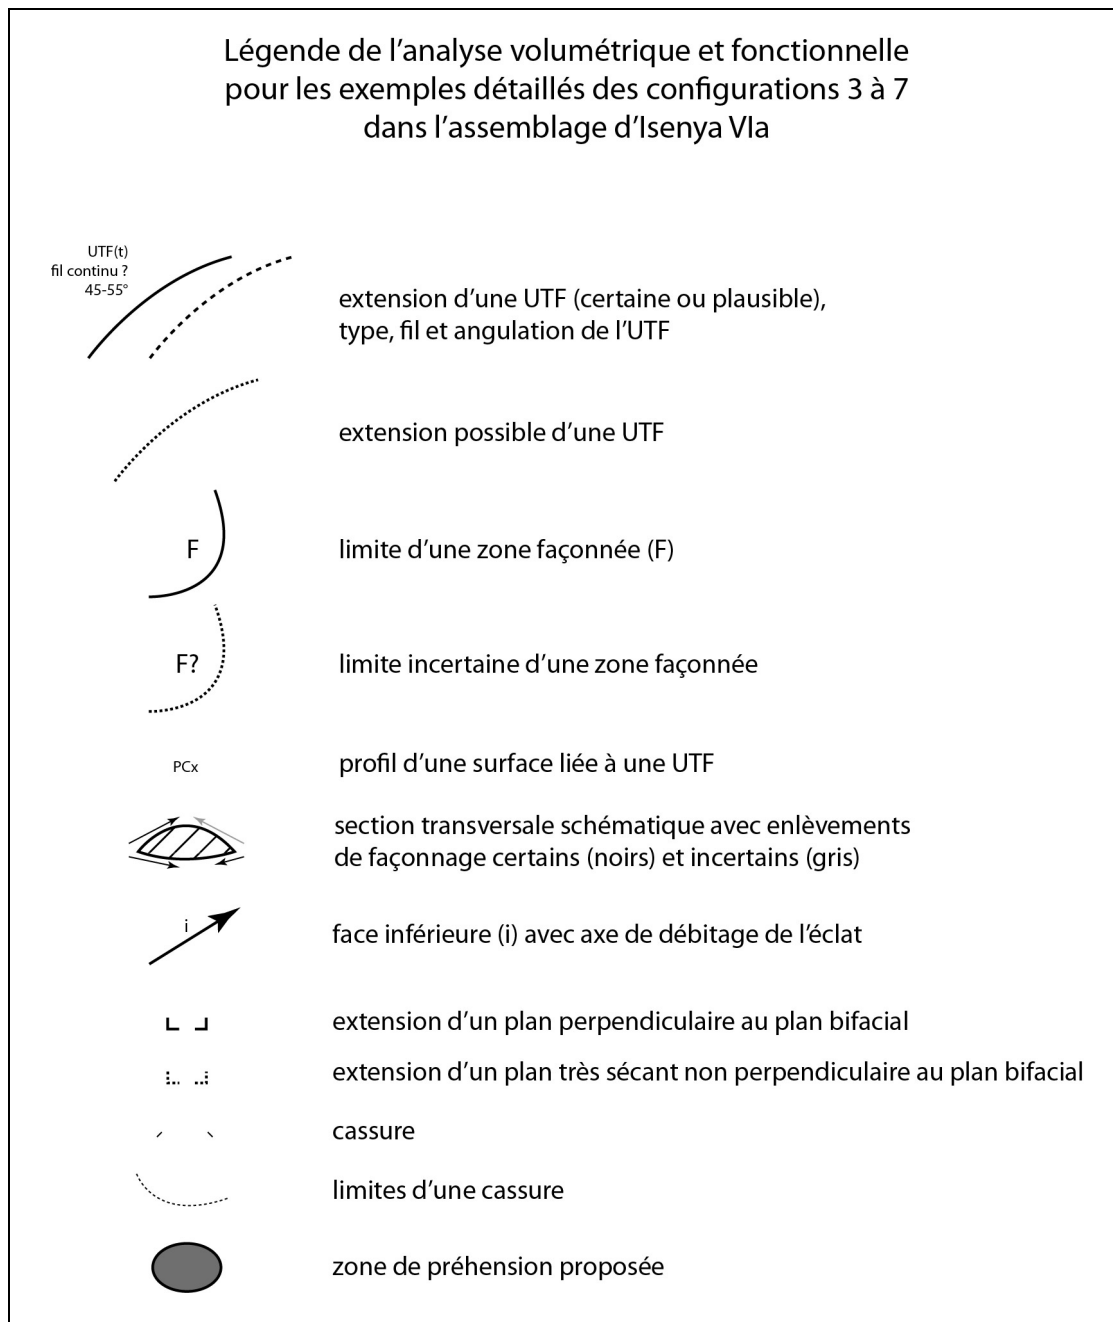 Légende de l’analyse volumétrique et fonctionnelle
pour les exemples détaillés des configurations 3 à 7
dans l’assemblage d’Isenya VIa
UTF(t)
fil continu ?
45-55°
extension d’une UTF (certaine ou plausible),
type, fil et angulation de l’UTF
extension possible d’une UTF
F
limite d’une zone façonnée (F)
F?
limite incertaine d’une zone façonnée
PCx
profil d’une surface liée à une UTF
section transversale schématique avec enlèvements
de façonnage certains (noirs) et incertains (gris)
i
face inférieure (i) avec axe de débitage de l’éclat
extension d’un plan perpendiculaire au plan bifacial
extension d’un plan très sécant non perpendiculaire au plan bifacial
cassure
limites d’une cassure
zone de préhension proposée